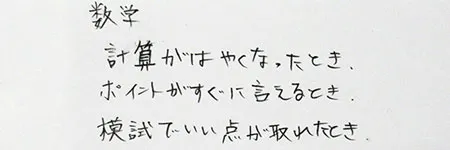 数学
計算がはやくなったとき.
ポイントがすぐに言えるとき.
模試でいい点が取れたとき.